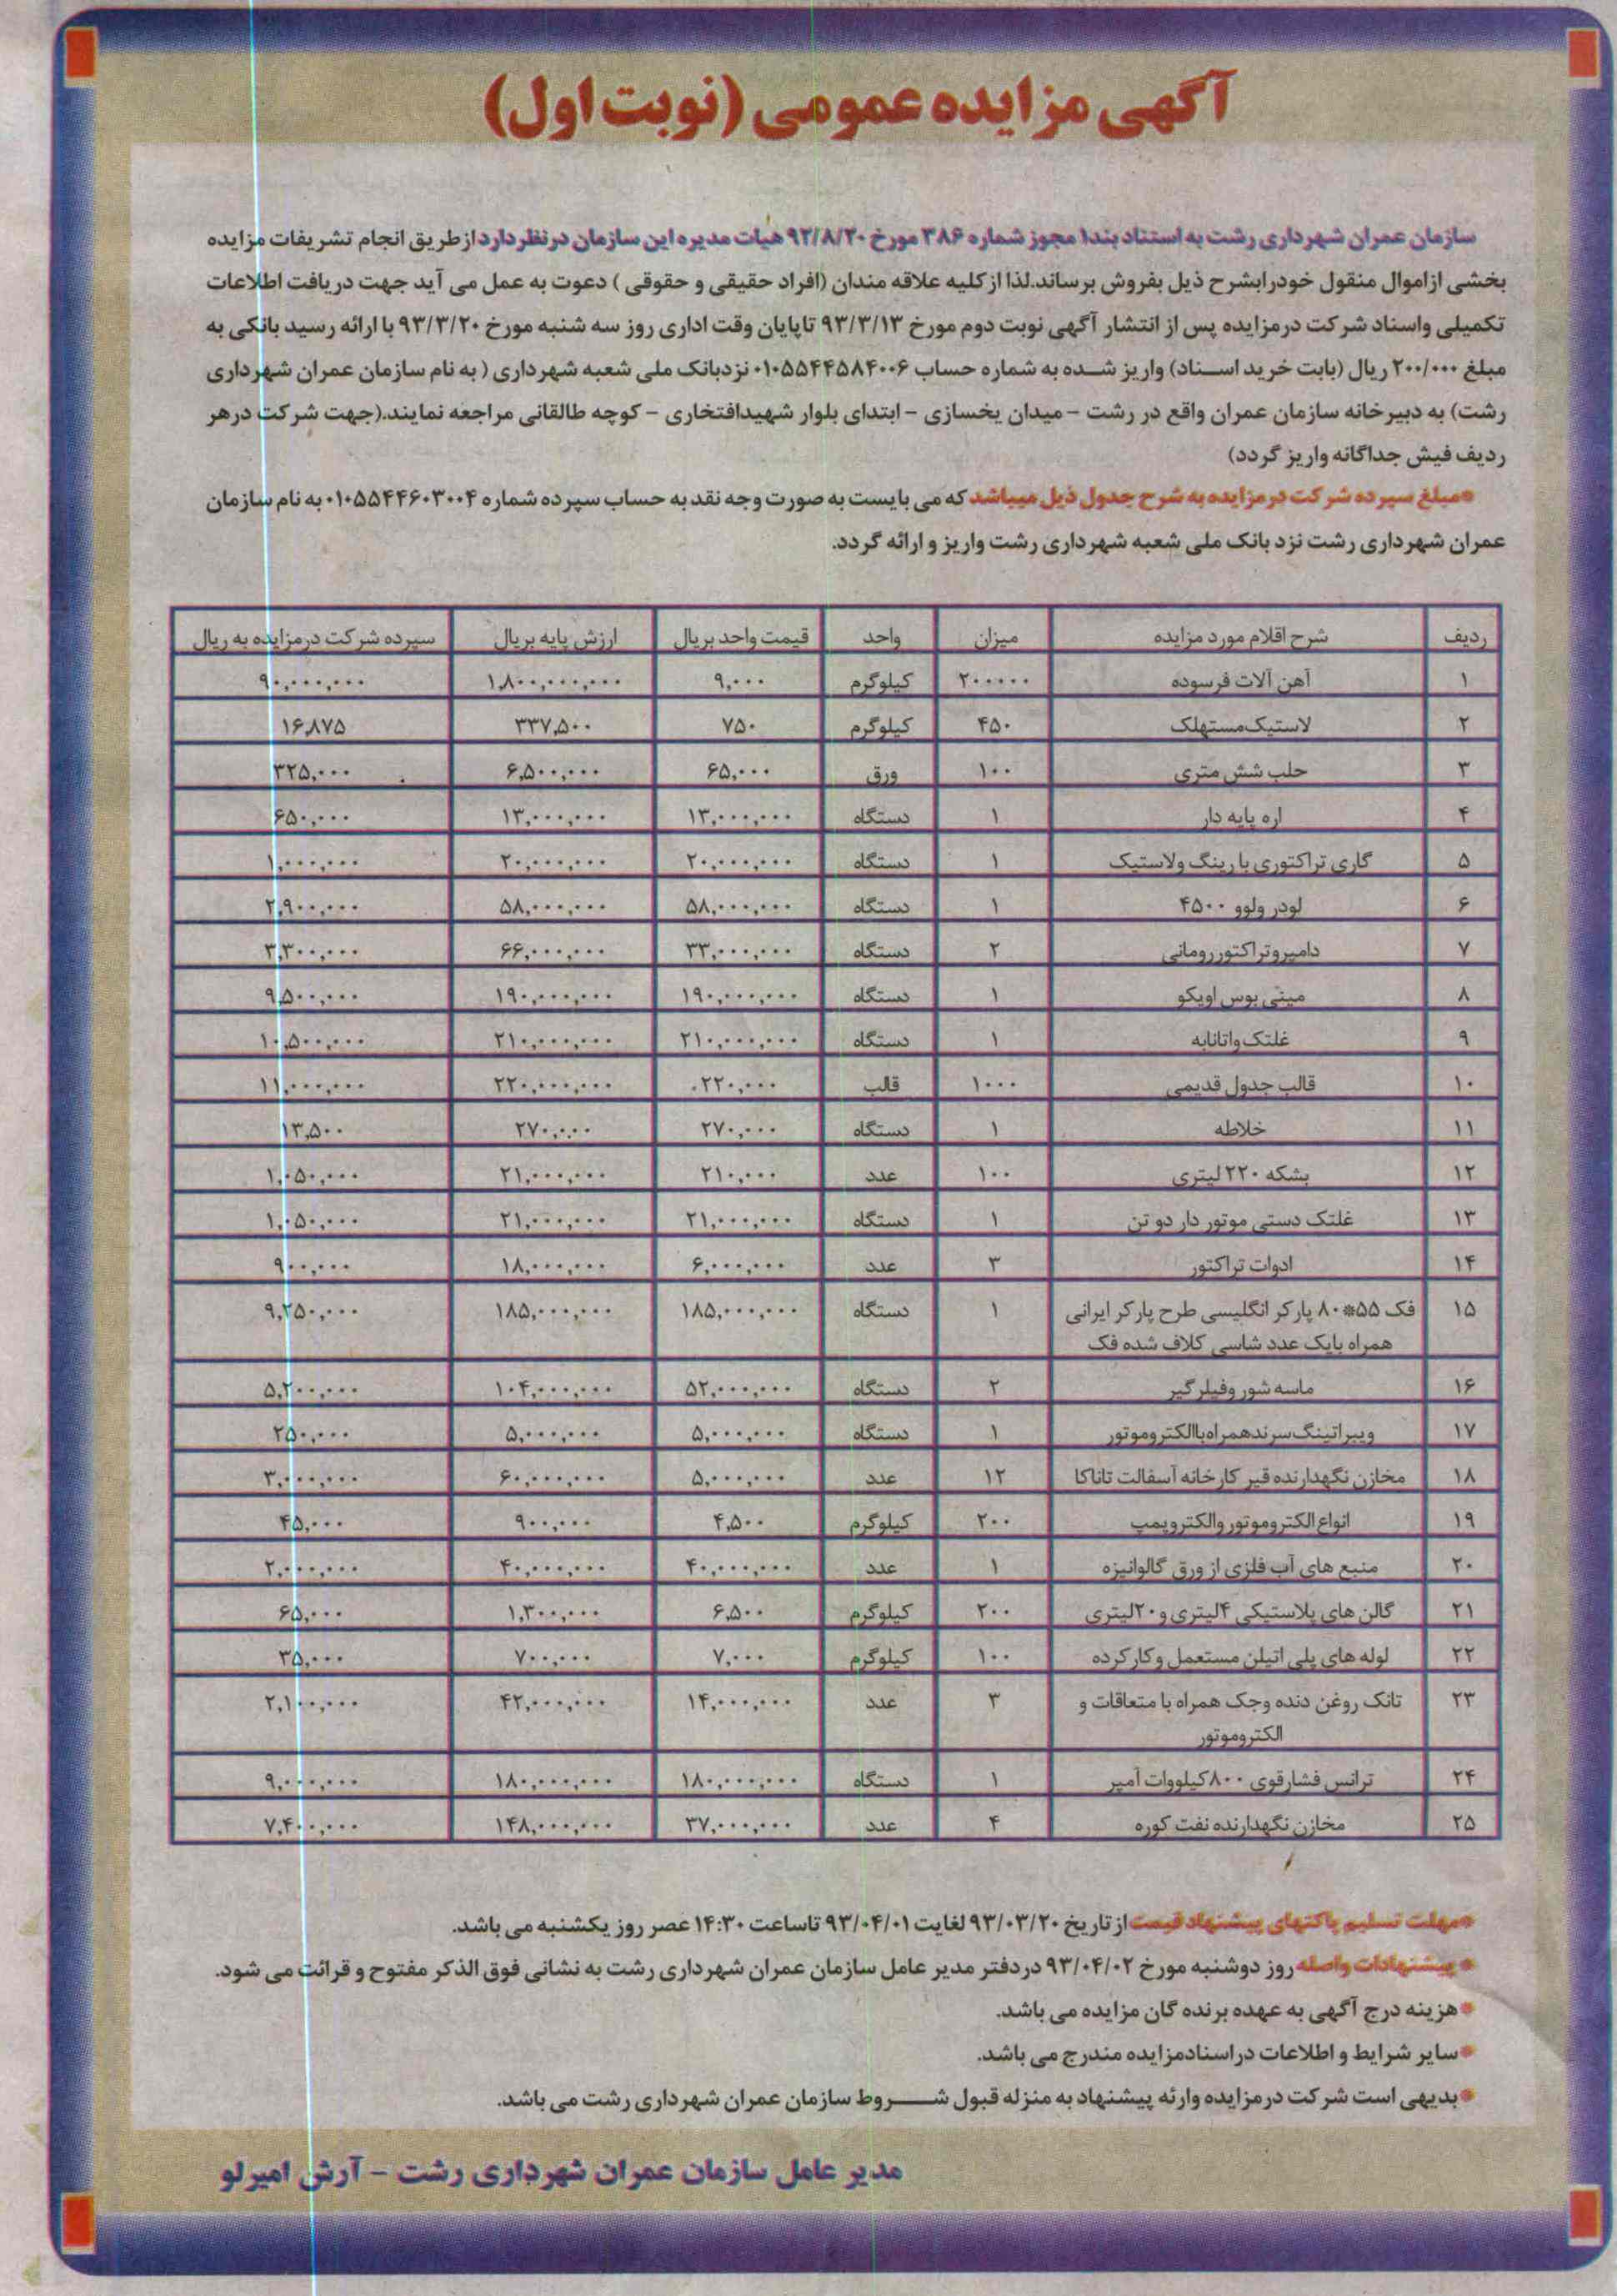 آگهی مزایده عمومی (نوبت اول)
سازمان عمران شهرداری رشت به استناد بند۱ مجوز شماره ۳۸۶ مورخ ۹۲/۸/۲۰ هیات مدیره این سازمان درنظردارد ازطریق انجام تشریفات مزایده
بخشی ازاموال منقول خودرابشرح ذیل بفروش برساند.لذا از کلیه علاقه مندان (افراد حقیقی و حقوقی ) دعوت به عمل می آید جهت دریافت اطلاعات
تکمیلی واسناد شرکت درمزایده پس از انتشار آگهی نوبت دوم مورخ ۹۳/۳/۱۳ تاپایان وقت اداری روز سه شنبه مورخ ۹۳/۳/۲۰ با ارائه رسید بانکی به
مبلغ ۲۰۰/۰۰۰ ریال (بابت خرید اسناد) واریز شده به شماره حساب ۰۱۰۵۵۴۴۵۸۴۰۰۶ نزدبانک ملی شعبه شهرداری ( به نام سازمان عمران شهرداری
رشت) به دبیرخانه سازمان عمران واقع در رشت - میدان یخسازی - ابتدای بلوار شهیدافتخاری - کوچه طالقانی مراجعه نمایند.(جهت شرکت درهر
ردیف فیش جداگانه واریز گردد)
*مبلغ سپرده شرکت درمزایده به شرح جدول ذیل میباشد که می بایست به صورت وجه نقد به حساب سپرده شماره ۰۱۰۵۵۴۴۶۰۳۰۰۴ به نام سازمان
عمران شهرداری رشت نزد بانک ملی شعبه شهرداری رشت واریز و ارائه گردد.
ردیف شرح اقلام مورد مزایده میزان واحد قیمت واحد بریال ارزش پایه بریال سپرده شرکت درمزایده به ریال
۱ آهن آلات فرسوده ۲۰۰۰۰۰ کیلوگرم ۹,۰۰۰ ۱,۸۰۰,۰۰۰,۰۰۰ ۹۰,۰۰۰,۰۰۰
۲ لاستیک مستهلک ۴۵۰ کیلوگرم ۷۵۰ ۳۳۷,۵۰۰ ۱۶,۸۷۵
۳ حلب شش متری ۱۰۰ ورق ۶۵,۰۰۰ ۶,۵۰۰,۰۰۰ ۳۲۵,۰۰۰
۴ اره پایه دار ۱ دستگاه ۱۳,۰۰۰,۰۰۰ ۱۳,۰۰۰,۰۰۰ ۶۵۰,۰۰۰
۵ گاری تراکتوری با رینگ ولاستیک ۱ دستگاه ۲۰,۰۰۰,۰۰۰ ۲۰,۰۰۰,۰۰۰ ۱,۰۰۰,۰۰۰
۶ لودر ولوو ۴۵۰۰ ۱ دستگاه ۵۸,۰۰۰,۰۰۰ ۵۸,۰۰۰,۰۰۰ ۲,۹۰۰,۰۰۰
۷ دامپروتراکتوررومانی ۲ دستگاه ۳۳,۰۰۰,۰۰۰ ۶۶,۰۰۰,۰۰۰ ۳,۳۰۰,۰۰۰
۸ مینی بوس اویکو ۱ دستگاه ۱۹۰,۰۰۰,۰۰۰ ۱۹۰,۰۰۰,۰۰۰ ۹,۵۰۰,۰۰۰
۹ غلتک واتانابه ۱ دستگاه ۲۱۰,۰۰۰,۰۰۰ ۲۱۰,۰۰۰,۰۰۰ ۱۰,۵۰۰,۰۰۰
۱۰ قالب جدول قدیمی ۱۰۰۰ قالب ۲۲۰,۰۰۰ ۲۲۰,۰۰۰,۰۰۰ ۱۱,۰۰۰,۰۰۰
۱۱ خلاطه ۱ دستگاه ۲۷۰,۰۰۰ ۲۷۰,۰۰۰ ۱۳,۵۰۰
۱۲ بشکه ۲۲۰ لیتری ۱۰۰ عدد ۲۱۰,۰۰۰ ۲۱,۰۰۰,۰۰۰ ۱,۰۵۰,۰۰۰
۱۳ غلتک دستی موتور دار دو تن ۱ دستگاه ۲۱,۰۰۰,۰۰۰ ۲۱,۰۰۰,۰۰۰ ۱,۰۵۰,۰۰۰
۱۴ ادوات تراکتور ۳ عدد ۶,۰۰۰,۰۰۰ ۱۸,۰۰۰,۰۰۰ ۹۰۰,۰۰۰
۱۵ فک ۵۵*۸۰ پارکر انگلیسی طرح پارکر ایرانی ۱ دستگاه ۱۸۵,۰۰۰,۰۰۰ ۱۸۵,۰۰۰,۰۰۰ ۹,۲۵۰,۰۰۰
همراه بایک عدد شاسی کلاف شده فک
۱۶ ماسه شور وفیلر گیر ۲ دستگاه ۵۲,۰۰۰,۰۰۰ ۱۰۴,۰۰۰,۰۰۰ ۵,۲۰۰,۰۰۰
۱۷ ویبراتینگ سرندهمراه باالکتروموتور ۱ دستگاه ۵,۰۰۰,۰۰۰ ۵,۰۰۰,۰۰۰ ۲۵۰,۰۰۰
۱۸ مخازن نگهدارنده قیر کارخانه آسفالت تاناکا ۱۲ عدد ۵,۰۰۰,۰۰۰ ۶۰,۰۰۰,۰۰۰ ۳,۰۰۰,۰۰۰
۱۹ انواع الکتروموتور والکتروپمپ ۲۰۰ کیلوگرم ۴,۵۰۰ ۹۰۰,۰۰۰ ۴۵,۰۰۰
۲۰ منبع های آب فلزی از ورق گالوانیزه ۱ عدد ۴۰,۰۰۰,۰۰۰ ۴۰,۰۰۰,۰۰۰ ۲,۰۰۰,۰۰۰
۲۱ گالن های پلاستیکی ۴لیتری و۲۰لیتری ۲۰۰ کیلوگرم ۶,۵۰۰ ۱,۳۰۰,۰۰۰ ۶۵,۰۰۰
۲۲ لوله های پلی اتیلن مستعمل وکارکرده ۱۰۰ کیلوگرم ۷,۰۰۰ ۷۰۰,۰۰۰ ۳۵,۰۰۰
۲۳ تانک روغن دنده وجک همراه با متعاقات و ۳ عدد ۱۴,۰۰۰,۰۰۰ ۴۲,۰۰۰,۰۰۰ ۲,۱۰۰,۰۰۰
الکتروموتور
۲۴ ترانس فشارقوی ۸۰۰کیلووات آمپر ۱ دستگاه ۱۸۰,۰۰۰,۰۰۰ ۱۸۰,۰۰۰,۰۰۰ ۹,۰۰۰,۰۰۰
۲۵ مخازن نگهدارنده نفت کوره ۴ عدد ۳۷,۰۰۰,۰۰۰ ۱۴۸,۰۰۰,۰۰۰ ۷,۴۰۰,۰۰۰
*مهلت تسلیم پاکتهای پیشنهاد قیمت از تاریخ ۹۳/۰۳/۲۰ لغایت ۹۳/۰۴/۰۱ تاساعت ۱۴:۳۰ عصر روز یکشنبه می باشد.
* پیشنهادات واصله روز دوشنبه مورخ ۹۳/۰۴/۰۲ دردفتر مدیر عامل سازمان عمران شهرداری رشت به نشانی فوق الذکر مفتوح و قرائت می شود.
*هزینه درج آگهی به عهده برنده گان مزایده می باشد.
*سایر شرایط و اطلاعات دراسنادمزایده مندرج می باشد.
*بدیهی است شرکت درمزایده وارئه پیشنهاد به منزله قبول شروط سازمان عمران شهرداری رشت می باشد.
مدیر عامل سازمان عمران شهرداری رشت - آرش امیرلو